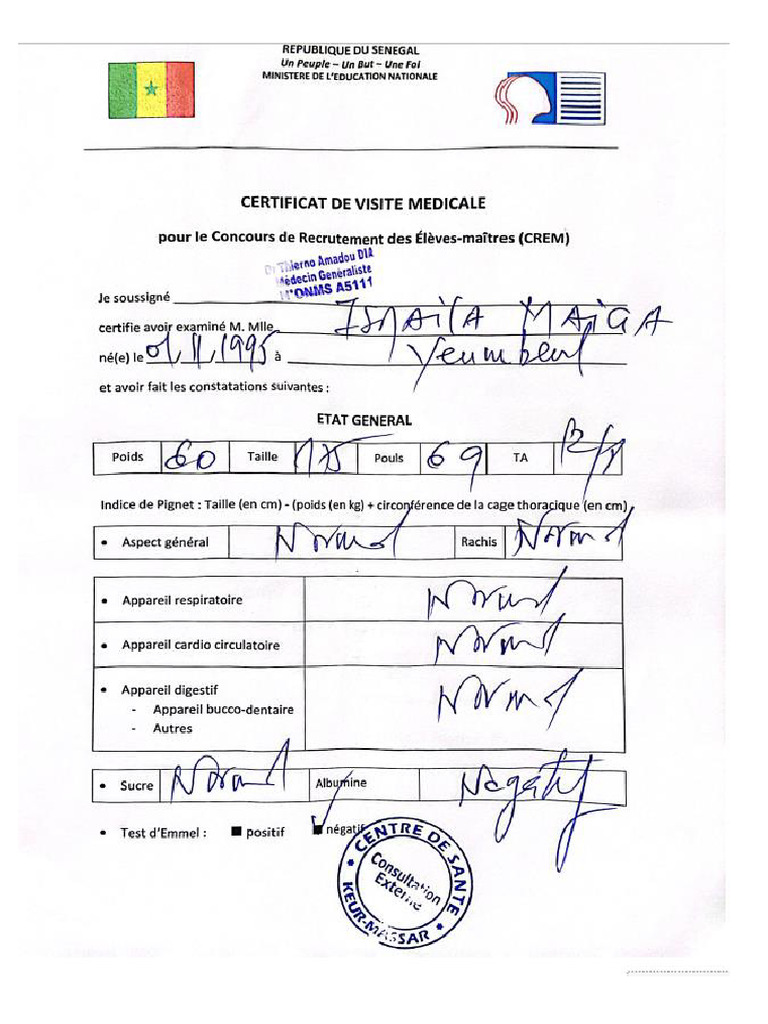 REPUBLIQUE DU SENEGAL
Un Peuple – Un But – Une Foi
MINISTERE DE L'EDUCATION NATIONALE
CERTIFICAT DE VISITE MEDICALE
pour le Concours de Recrutement des Élèves-maîtres (CREM)
Dr Thierno Amadou DIA
Médecin Généraliste
N°ONMS A5111
Je soussigné
certifie avoir examiné M. Mlle ISMAILA MAIGA
né(e) le 01/11/1995 à Yeumbeul
et avoir fait les constatations suivantes :
ETAT GENERAL
Poids 60 Taille 175 Pouls 69 TA
Indice de Pignet : Taille (en cm) - (poids (en kg) + circonférence de la cage thoracique (en cm)
• Aspect général Normal Rachis Normal
• Appareil respiratoire Normal
• Appareil cardio circulatoire Normal
• Appareil digestif Normal
- Appareil bucco-dentaire
- Autres
• Sucre Normal Albumine Négatif
• Test d'Emmel : ■ positif ■ négatif
CENTRE DE SANTE
Consultation
Externe
KEUR-MASSAR